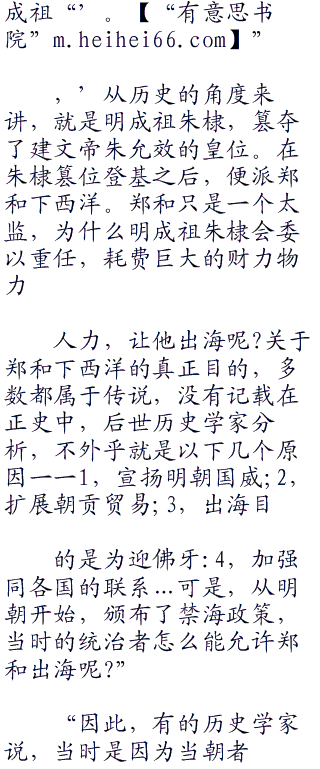 成祖“’。【“有意思书
院”m.heihei66.com】”
，’从历史的角度来
讲，就是明成祖朱棣，篡夺
了建文帝朱允效的皇位。在
朱棣篡位登基之后，便派郑
和下西洋。郑和只是一个太
监，为什么明成祖朱棣会委
以重任，耗费巨大的财力物
力
人力，让他出海呢?关于
郑和下西洋的真正目的，多
数都属于传说，没有记载在
正史中，后世历史学家分
析，不外乎就是以下几个原
因一一1，宣扬明朝国威;2，
扩展朝贡贸易;3，出海目
的是为迎佛牙:4，加强
同各国的联系…可是，从明
朝开始，颁布了禁海政策，
当时的统治者怎么能允许郑
和出海呢?”
“因此，有的历史学家
说，当时是因为当朝者